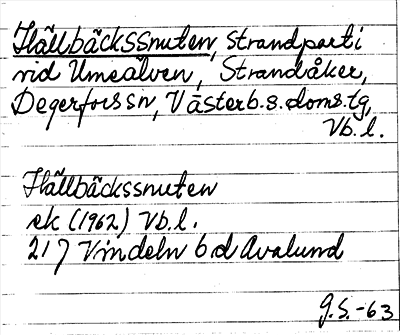 Hällbäckssnuten, strandparti
vid Umeälven, Strandåker,
Degerfors sn, Västerb.s.doms.tg,
Vb.l.
Hällbäckssnuten
ek (1962) Vb.l.
21 J Vindeln 6 d Avalund
G.S.-63